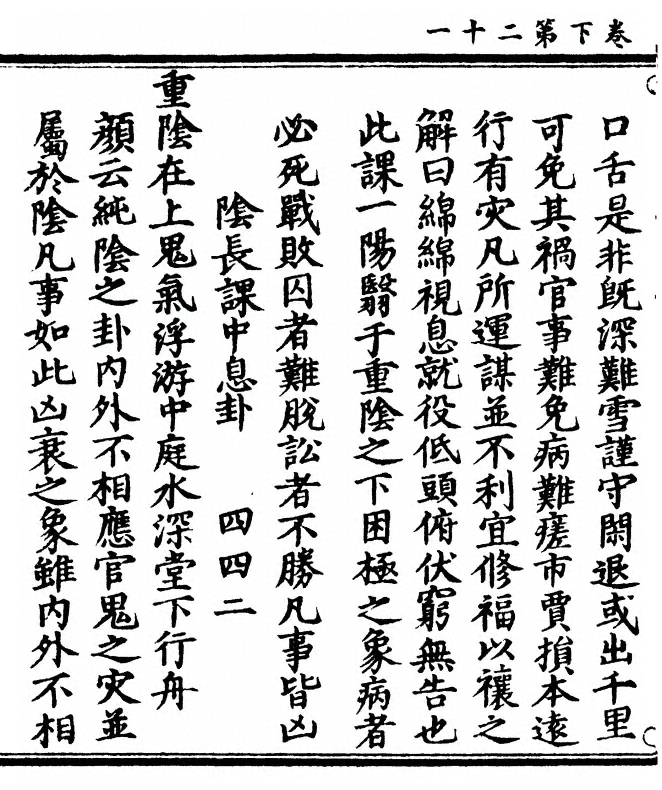 卷下第二十一
口舌是非旣深難雪謹守閑退或出千里
可免其禍官事難免病難瘥市賈損本遠
行有灾凡所運謀並不利宜修福以禳之
解曰綿綿視息就役低頭俯伏窮無告也
此課一陽翳于重陰之下困極之象病者
必死戰敗囚者難脫訟者不勝凡事皆凶
陰長課中息卦 四四二
重陰在上鬼氣浮游中庭水深堂下行舟
顔云純陰之卦内外不相應官鬼之灾並
屬於陰凡事如此凶衰之象雖内外不相